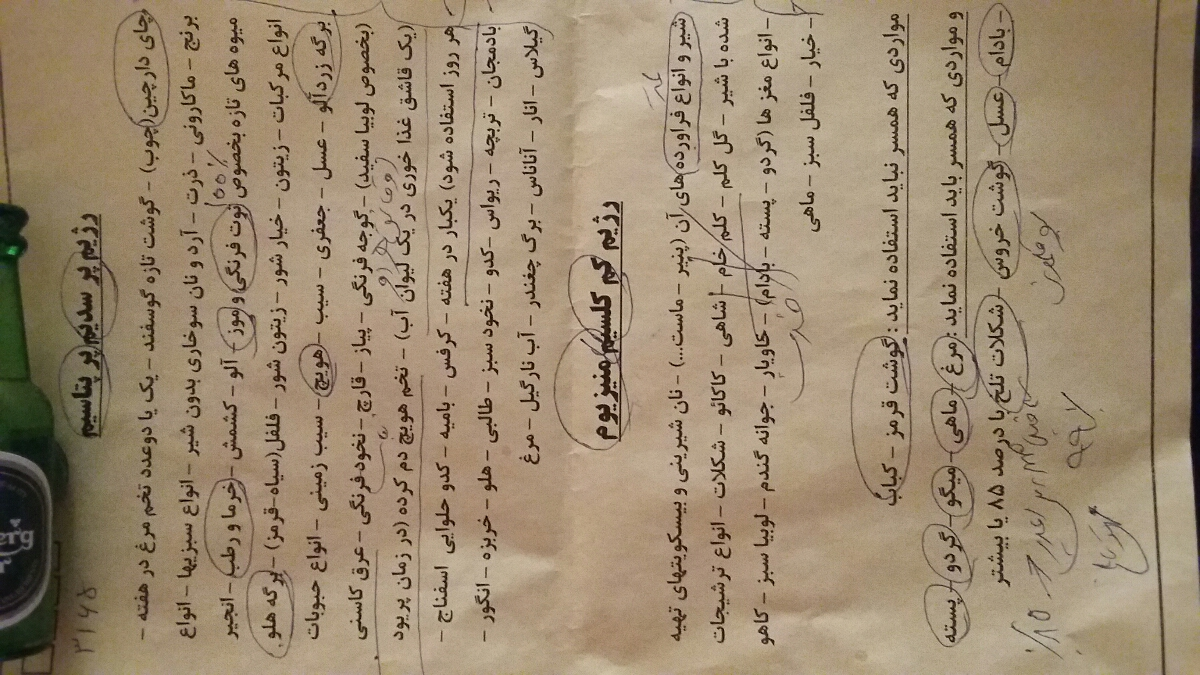 ۳۱۶۸
رژیم پر سدیم پر پتاسیم
چای دارچین (چوب) - گوشت تازه گوسفند - یک یا دو عدد تخم مرغ در هفته -
برنج - ماکارونی - ذرت - آرد و نان سوخاری بدون شیر - انواع سبزیها - انواع
میوه های تازه بخصوص توت فرنگی و موز - آلو - کشمش - خرما و رطب - انجیر
انواع مرکبات - زیتون - خیار شور - زیتون شور - فلفل (سیاه - قرمز) - برگه هلو -
برگه زردآلو - عسل - جعفری - سیب - هویج - سیب زمینی - انواع حبوبات
(بخصوص لوبیا سفید) - گوجه فرنگی - پیاز - قارچ - نخود فرنگی - عرق کاسنی
(یک قاشق غذا خوری در یک لیوان آب) - تخم هویچ دم کرده (در زمان پریود
هر روز استفاده شود) یکبار در هفته - کرفس - بامیه - کدو حلوایی اسفناج -
بادمجان - تربچه - ریواس - کدو - نخود سبز - طالبی - هلو - خربزه - انگور -
گیلاس - انار - آناناس - برگ چغندر - آب نارگیل - مرغ
رژیم کم کلسیم منیزیوم
شیر و انواع فراورده های آن (پنیر - ماست...) - نان شیرینی و بیسکویتهای تهیه
شده با شیر - گل کلم - کلم خام - شاهی - کاکائو - شکلات - انواع ترشیجات
- انواع مغزها (گردو - پسته - بادام) - خاویار - جوانه گندم - لوبیا سبز - کاهو
- خیار - فلفل سبز - ماهی
مواردی که همسر نباید استفاده نماید: گوشت قرمز - کباب
و مواردی که همسر باید استفاده نماید: مرغ - ماهی - میگو - گردو - پسته
- بادام - عسل - گوشت خروس - شکلات تلخ با درصد ۸۵ یا بیشتر
۸۵٪